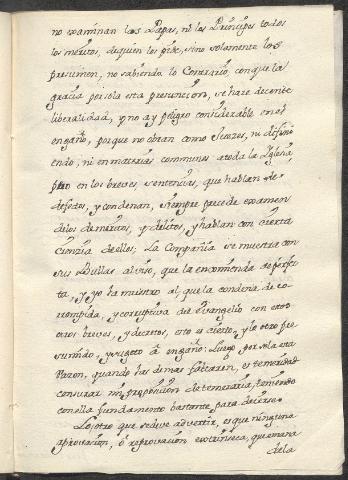 no examinan los Papas, ni los Príncipes todos
los méritos, de quien les pide, sino solamente los
presumen, no sabiendo lo Contrario, con que la
gracia por sola esta presuncion, se haze decente
liberalidad, y no ay peligro considerable en el
engaño, porque no obran como Juezes, ni difini
endo, ni en materias communes a toda la Iglesia,
pero en los breves, y sentencias, que hablan de
defectos, y condenan, siempre precede examen
de los demeritos, y delitos, y hablan con cierta
Ciencia de ellos; La Compañia se muestra con
sus Bullas al uiso, que la encomienda de perfec
ta, y yo la muestro al, que la condena de co
rrompida, y corruptiva del Evangelio con otros
breves, y decretos, esto es cierto, y lo otro pre
sumido, y sugeto à engaño: Luego por sola esta
Razon, quando las demas faltaren, es temeridad
censurar mi proposicion de temeraria, teniendo
con ella fundamento bastante para decirse.
Lo otro que se deve advertir, es que ninguna
aprovacion, ò reprovacion extrinseca, que mana
de la